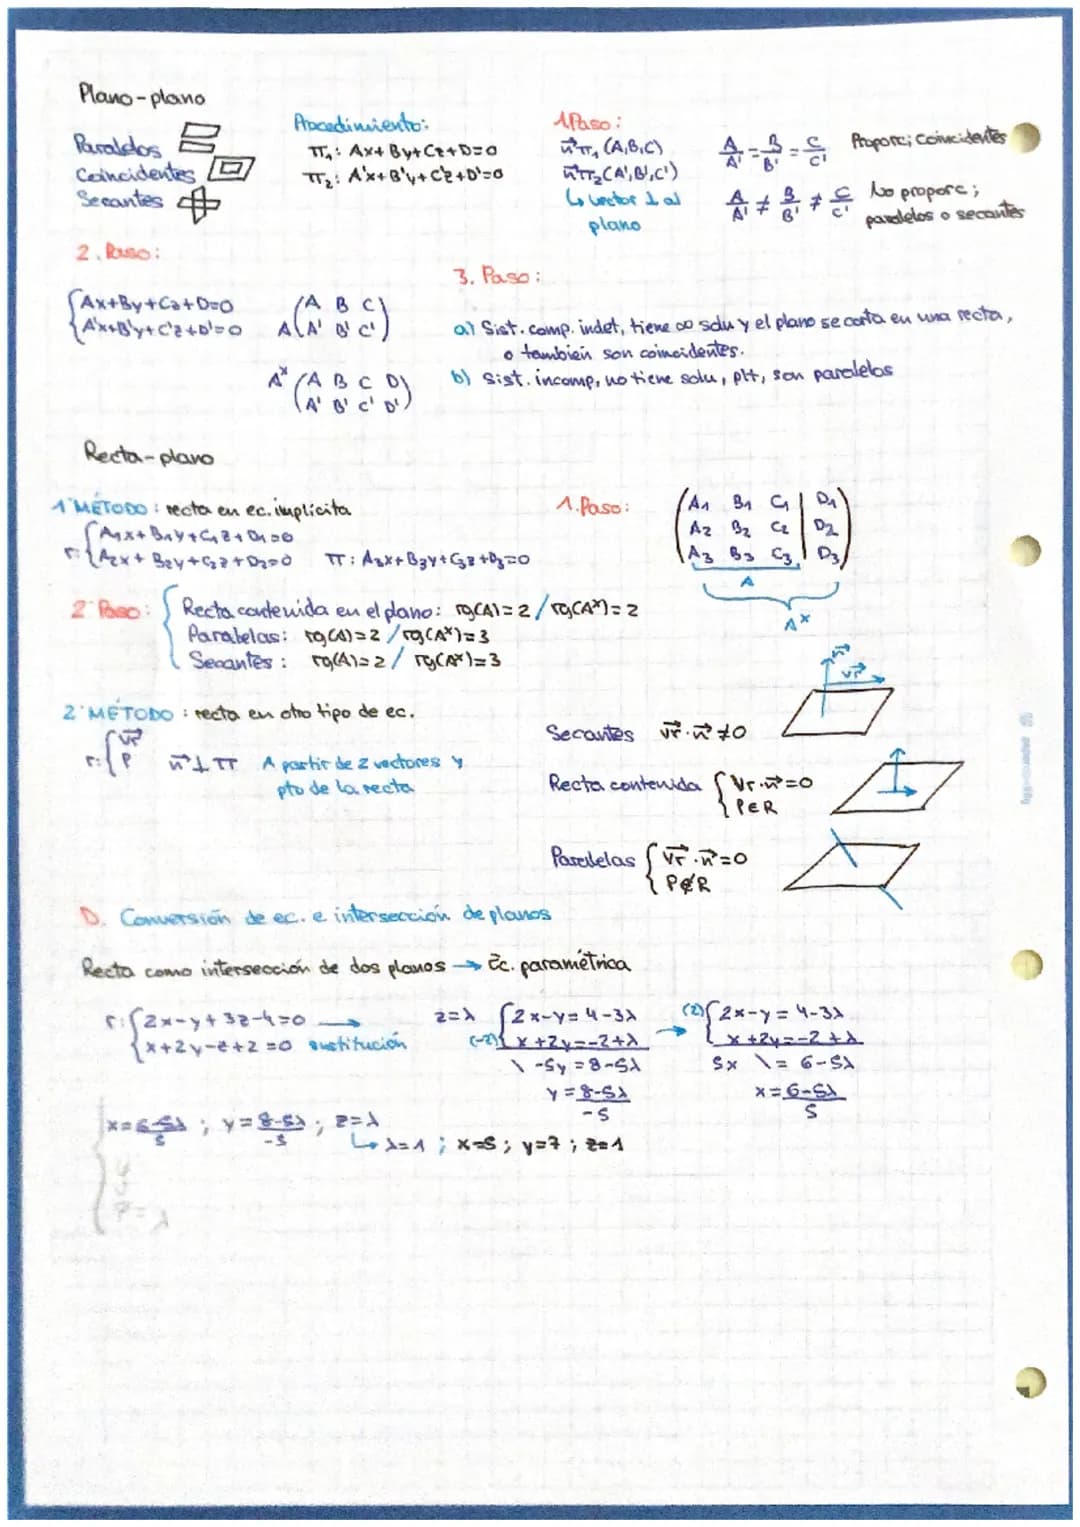 Plano-plano
Paralelos
Coincidentes
Secantes
Procedimiento:
π₁: Ax+By+Cz+D=0
π₂: A'x+B'y+C'z+D'=0
1.Paso:
n⃗π₁ (A,B,C)
n⃗π₂ (A',B',C')
↳ vector ⊥ al
plano
A/A' = B/B' = C/C' Proporc; Coincidentes
A/A' ≠ B/B' ≠ C/C' No proporc;
paralelos o secantes
2. Paso:
{Ax+By+Cz+D=0
{A'x+B'y+C'z+D'=0
A (A B C)
(A' B' C')
A* (A B C D)
(A' B' C' D')
3. Paso:
a) Sist. comp. indet, tiene ∞ solu y el plano se corta en una recta,
o también son coincidentes.
b) Sist. incomp, no tiene solu, plt, son paralelos
Recta-plano
1°MÉTODO: recta en ec. implícita
r: {A₁x+B₁y+C₁z+D₁=0
{A₂x+B₂y+C₂z+D₂=0 π: A₃x+B₃y+C₃z+D₃=0
1.Paso:
(A₁ B₁ C₁ | D₁)
(A₂ B₂ C₂ | D₂)
(A₃ B₃ C₃ | D₃)
A
A*
2°Paso: {Recta contenida en el plano: rg(A)=2/rg(A*)=2
Paralelas: rg(A)=2/rg(A*)=3
Secantes: rg(A)=2/rg(A*)=3
2°MÉTODO: recta en otro tipo de ec.
r: {v⃗r
{P n⃗ ⊥ π A partir de 2 vectores y
pto de la recta
n⃗
v⃗r
Secantes v⃗r·n⃗≠0
Recta contenida {v⃗r·n⃗=0
{P∈R
Paralelas {v⃗r·n⃗=0
{P∉R
D. Conversión de ec. e intersección de planos
Recta como intersección de dos planos → Ec. paramétrica
r: {2x-y+3z-4=0 →
{x+2y-z+2=0 sustitución
z=λ {2x-y=4-3λ
(-2){x+2y=-2+λ
\ -5y=8-5λ
y=8-5λ/-5
(2){2x-y=4-3λ
{x+2y=-2+λ
5x \ = 6-5λ
x=6-5λ/5
x=6-5λ/5 ; y=8-5λ/-5 ; z=λ
↳ λ=1 ; x=5 ; y=7 ; z=1